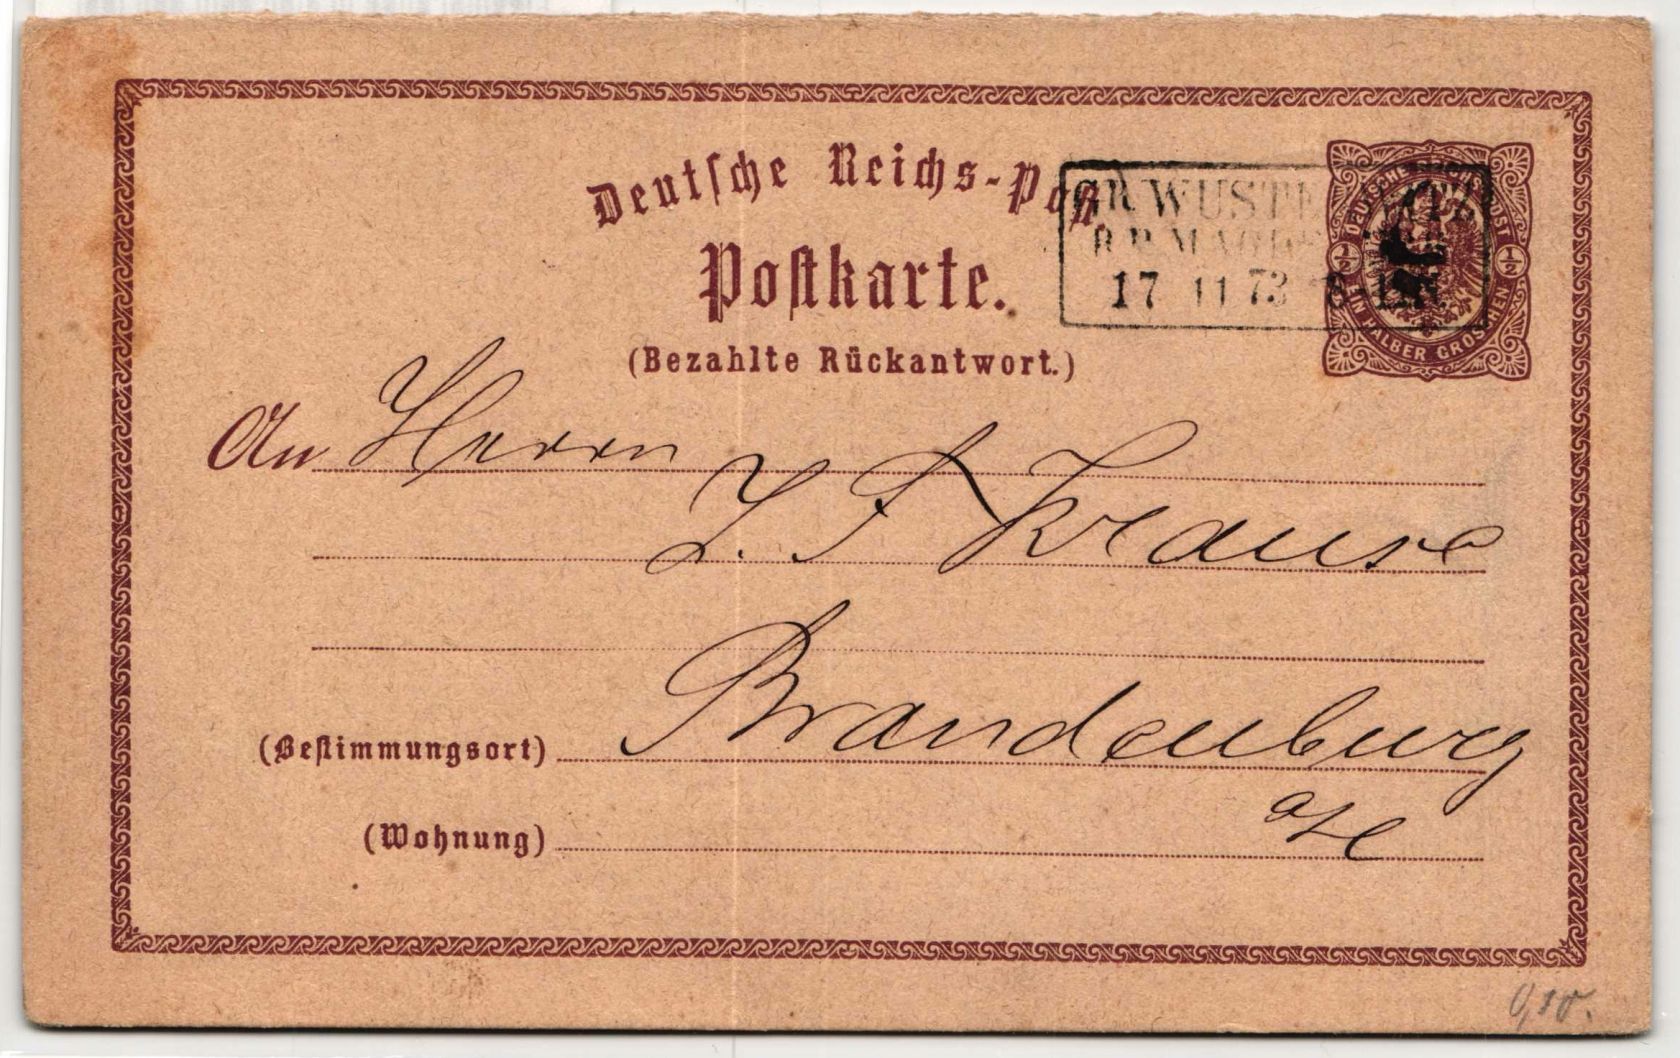 Deutsche Reichs-Post.
Postkarte.
(Bezahlte Rückantwort.)
GR. WUSTE
R.B. MAGD
17 11 73 8-
DEUTSCHE REICHS POST
½ ½
EIN HALBER GROSCHEN
An Herrn
F Krause
(Bestimmungsort) Brandenburg
(Wohnung) a/H
0,80.